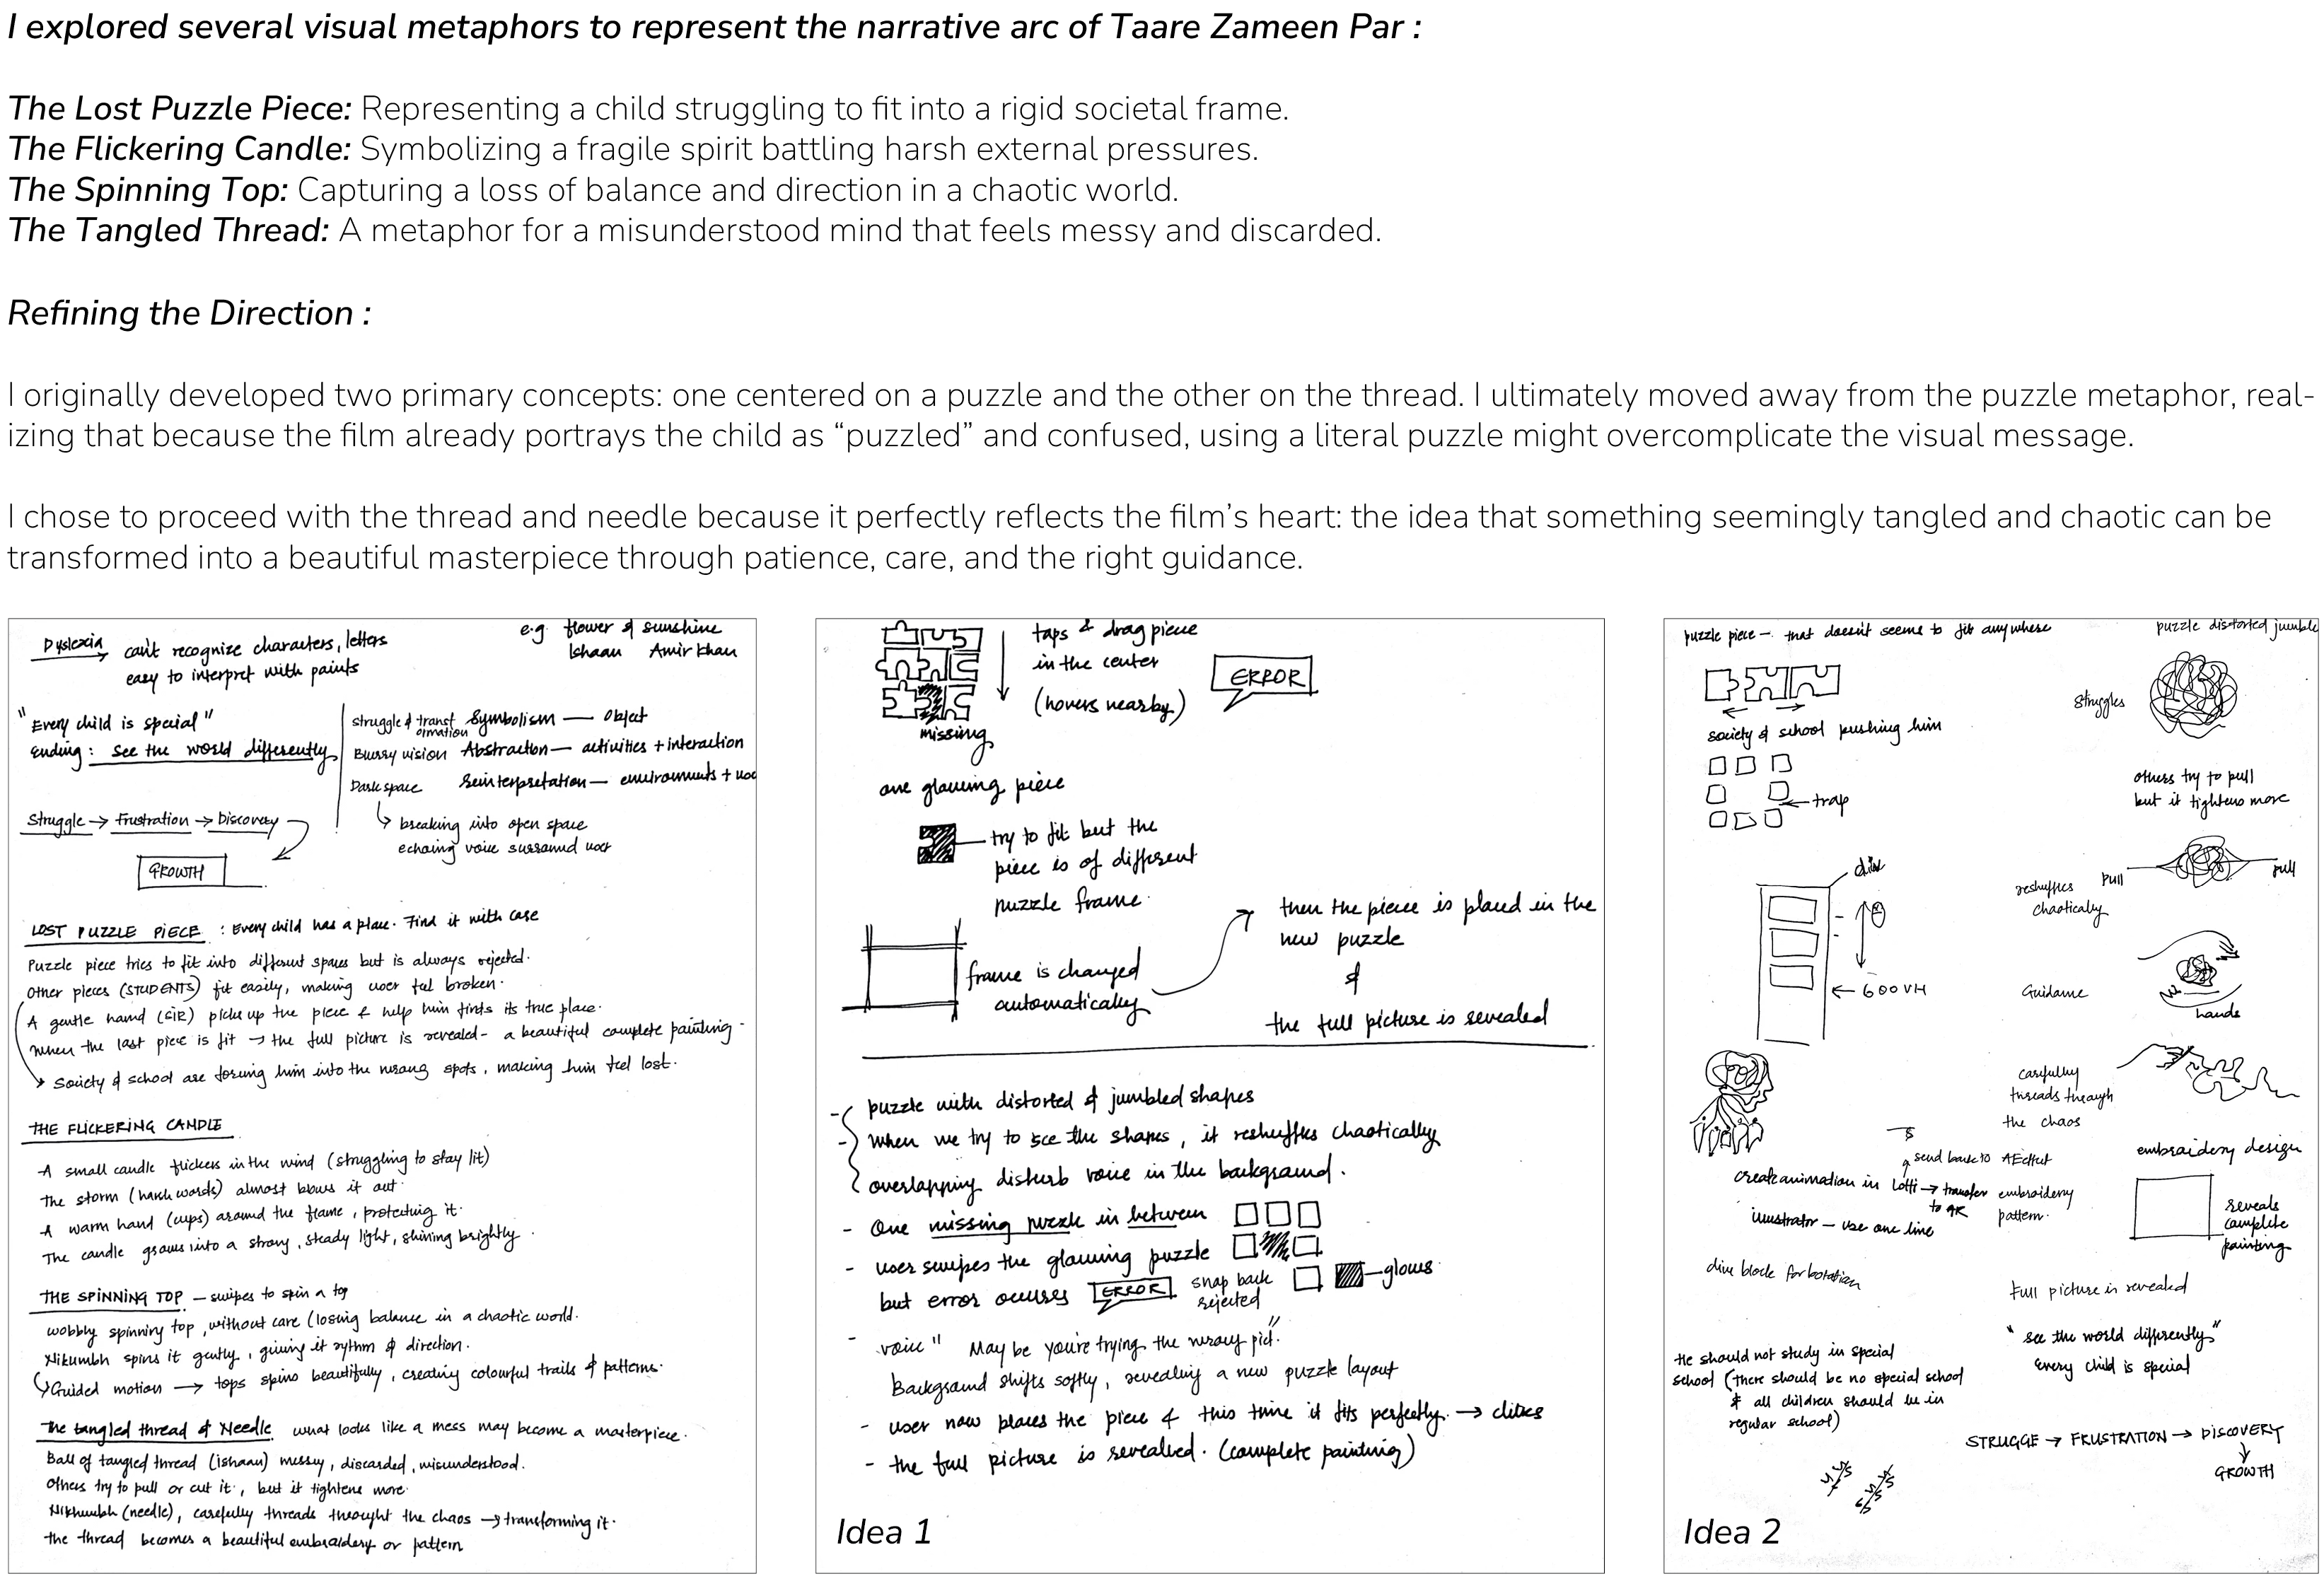 I explored several visual metaphors to represent the narrative arc of Taare Zameen Par :
The Lost Puzzle Piece: Representing a child struggling to fit into a rigid societal frame.
The Flickering Candle: Symbolizing a fragile spirit battling harsh external pressures.
The Spinning Top: Capturing a loss of balance and direction in a chaotic world.
The Tangled Thread: A metaphor for a misunderstood mind that feels messy and discarded.
Refining the Direction :
I originally developed two primary concepts: one centered on a puzzle and the other on the thread. I ultimately moved away from the puzzle metaphor, real-
izing that because the film already portrays the child as “puzzled” and confused, using a literal puzzle might overcomplicate the visual message.
I chose to proceed with the thread and needle because it perfectly reflects the film’s heart: the idea that something seemingly tangled and chaotic can be
transformed into a beautiful masterpiece through patience, care, and the right guidance.
Dyslexia can't recognize characters, letters
easy to interpret with paints
e.g flower & sunshine
Ishaan Amir Khan
"Every child is special"
Ending : see the world differently
struggle & transformation Symbolism — object
Blurry vision Abstraction — activities + interaction
Dark space Reinterpretation — environments +
breaking into open space
echoing voice surround user
Struggle → Frustration → Discovery
GROWTH
LOST PUZZLE PIECE : Every child has a place. Find it with care
Puzzle piece tries to fit into different spaces but is always rejected.
Other pieces (STUDENTS) fit easily, making user feel broken.
A gentle hand (SIR) picks up the piece & help him finds its true place.
When the last piece is fit → the full picture is revealed - a beautiful complete painting -
Society & school are forcing him into the wrong spots, making him feel lost.
THE FLICKERING CANDLE
A small candle flickers in the wind (struggling to stay lit)
The storm (harsh words) almost blows it out.
A warm hand (cups) around the flame, protecting it.
The candle grows into a strong, steady light, shining brightly.
THE SPINNING TOP — swipes to spin a top
wobbly spinning top, without care (losing balance in a chaotic world.
Nikumbh spins it gently, giving it rythm & direction.
Guided motion → tops spins beautifully, creating colourful trails & patterns.
The tangled thread & Needle what looks like a mess may become a masterpiece.
Ball of tangled thread (ishaan) messy, discarded, misunderstood.
Others try to pull or cut it, but it tightens more.
Nikhumbh (needle), carefully threads throught the chaos → transforming it.
The thread becomes a beautiful embraidery or pattern
taps & drag piece
in the center
(hovers nearby)
ERROR
missing
one glowing piece
try to fit but the
piece is of different
puzzle frame.
frame is changed
automatically
then the piece is placed in the
new puzzle
&
the full picture is revealed
- puzzle with distorted & jumbled shapes
- when we try to see the shapes, it reshuffles chaotically
overlapping disturb voice in the background.
- One missing puzzle in between
- user swipes the glowing puzzle
but error occures ERROR snap back
rejected
glows
- voice " May be you're trying the wrong pic!"
Background shifts softly, revealing a new puzzle layout
- user now places the piece & this time it fits perfectly. → clicks
- the full picture is revealved. (complete painting)
Idea 1
puzzle piece - that doesn't seems to fit anywhere
society & school pushing him
trap
div
600VH
create animation in Lotti → transfer
to
send back to AEeffect
illustrator — use one line
div block for rotation
He should not study in special
school (there should be no special school
& all children should be in
regular school)
puzzle distorted jumble
struggles
others try to pull
but it tightens more
pull
pull
reshuffles
chaotically
Guidance
hands
carefully
threads through
the chaos
embraidery design
embraidery
pattern.
reveals
complete
painting
Full picture is revealed
"see the world differently"
Every child is special
STRUGGE → FRUSTRATION → DISCOVERY
GROWTH
Idea 2